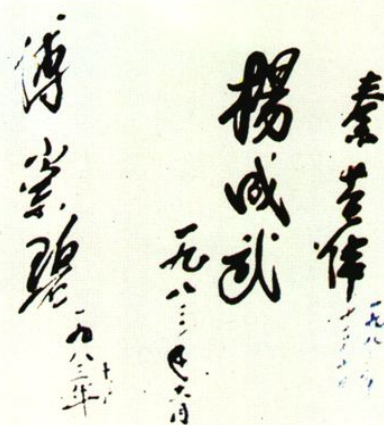 秦基伟
一九八三年
楊成武
一九八三年六月
傅崇碧
一九八三年